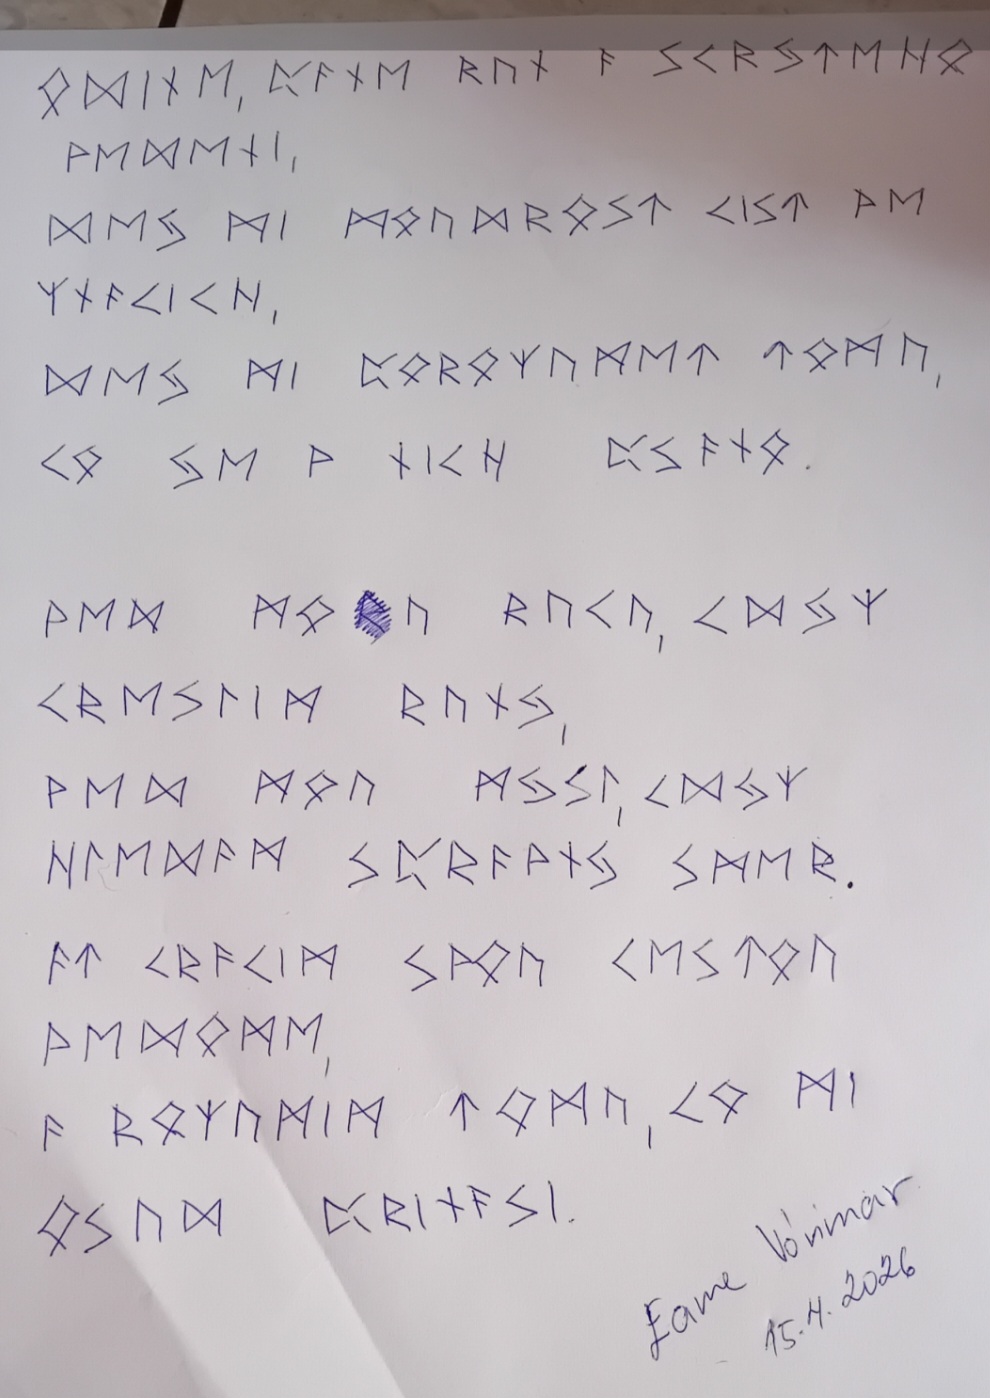 ᛟᛞᛁᚾᛖ, ᛈᚨᚾᛖ ᚱᚢᚾ ᚨ ᛊᚲᚱᛃᛏᛖᚺᛟ
ᚹᛖᛞᛖᚾᛁ,
ᛞᛖᛃ ᛗᛁ ᛗᛟᚢᛞᚱᛟᛊᛏ ᚲᛁᛊᛏ ᚹᛖ
ᛉᚾᚨᚲᛁᚲᚺ,
ᛞᛖᛃ ᛗᛁ ᛈᛟᚱᛟᛉᚢᛗᛖᛏ ᛏᛟᛗᚢ,
ᚲᛟ ᛃᛖ ᚹ ᚾᛁᚲᚺ ᛈᛊᚨᚾᛟ.
ᚹᛖᛞ ᛗᛟᚢ ᚱᚢᚲᚢ, ᚲᛞᛃᛉ
ᚲᚱᛖᛊᛚᛁᛗ ᚱᚢᚾᛃ,
ᚹᛖᛞ ᛗᛟᚢ ᛗᛃᛊᛚ, ᚲᛞᛃᛉ
ᚺᛚᛖᛞᚨᛗ ᛊᛈᚱᚨᚹᚾᛃ ᛊᛗᛖᚱ.
ᚨᛏ ᚲᚱᚨᚲᛁᛗ ᛊᚹᛟᚢ ᚲᛖᛊᛏᛟᚢ
ᚹᛖᛞᛟᛗᛖ,
ᚨ ᚱᛟᛉᚢᛗᛁᛗ ᛏᛟᛗᚢ, ᚲᛟ ᛗᛁ
ᛟᛊᚢᛞ ᛈᚱᛁᚾᚨᛊᛁ.
Eame Vónimar
15.4.2026